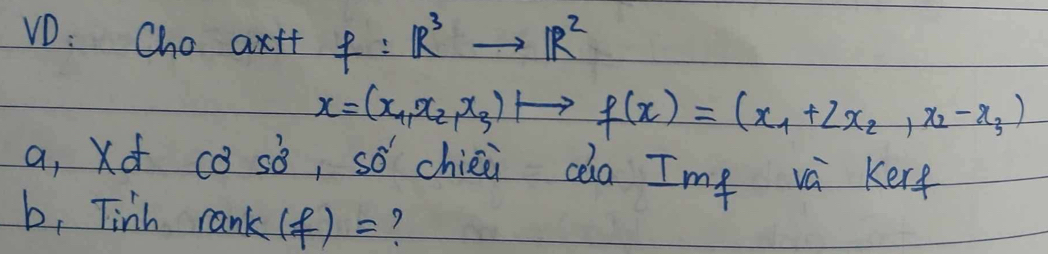 VD: Cho axtt f : ℝ³ → ℝ²
x = (x₁, x₂, x₃) ↦ f(x) = (x₁ + 2x₂ , x₂ - x₃)
a, Xđ cơ sở, số chiều của Imf và Kerf
b, Tính rank(f) = ?